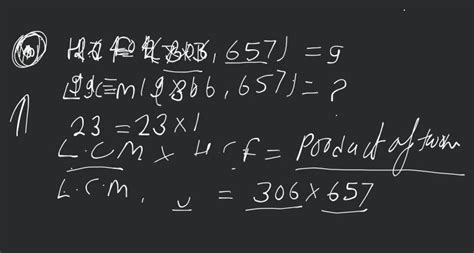 H.C.F (306, 657) = 9
L.C.M (306, 657) = ?
23 = 23 x 1
L.C.M x H C F = Product of
L.C.M. = 306 x 657